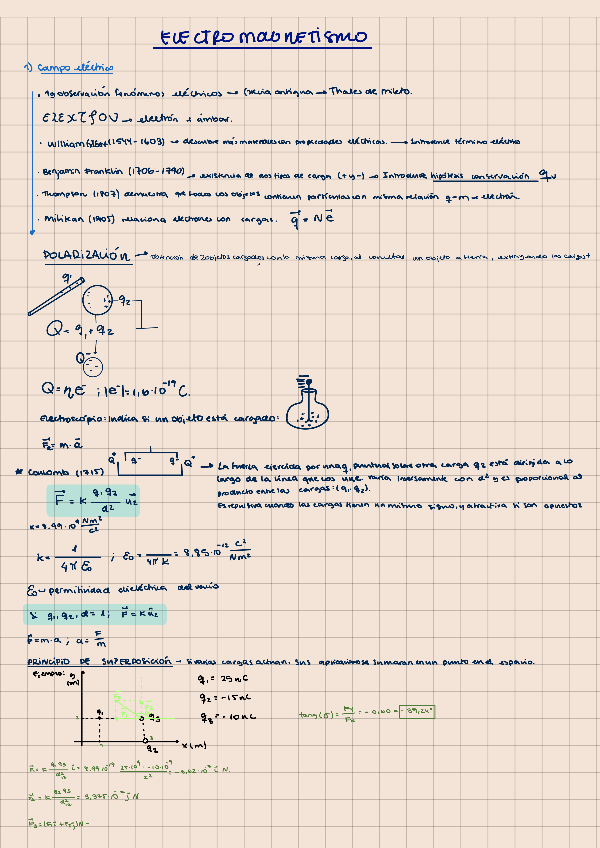 ELECTROMAGNETISMO
1) Campo eléctrico
· 1ª observación fenómenos eléctricos → Grecia antigua → Thales de Mileto.
ΕΛΕΚΤΡΟΝ → electrón = ámbar.
· William Gilbert (1544-1603) → descubre más materiales con propiedades eléctricas. → Introduce término eléctrico
· Benjamin Franklin (1706-1790) → existencia de dos tipos de carga (+ y -) → Introduce hipótesis conservación q
· Thompson (1907) demuestra que todos los objetos contienen partículas con misma relación q-m = electrón
· Milikan (1905) relaciona electrones con cargas. q = Ne
POLARIZACIÓN → obtención de 2 objetos cargados con la misma carga, al conectar un objeto a tierra, extinguiendo las cargas
q1
q2
Q = q1 + q2
Q
Q = ne⁻ ; |e⁻| = 1,6·10⁻¹⁹ C.
Electroscopio: Indica si un objeto está cargado:
F = m·a
* Coulomb (1715)
Q⁺ q⁻ q⁺ Q⁻
→ La fuerza ejercida por una q, puntual sobre otra carga q2 está dirigida a lo
largo de la línea que los une. Varía inversamente con d² y es proporcional al
producto entre las cargas: (q1·q2).
Es repulsiva cuando las cargas tienen un mismo signo, y atractiva si son opuestos
F = K q1 q2 / d² u2
K = 8.99·10⁹ Nm²/C²
K = 1 / 4π ε0 ; ε0 = 1 / 4π K = 8,85·10⁻¹² C²/Nm²
ε0 → permitividad dieléctrica del vacío
Si q1, q2, d = 1; F = K u2
F = m·a ; a = F/m
PRINCIPIO DE SUPERPOSICIÓN → Si varias cargas actúan, sus aplicaciones se sumaran en un punto en el espacio.
Ejemplo: y (m)
q1 = 25 nC
q2 = -15 nC
q3 = -10 nC
q1 q3
q2
x (m)